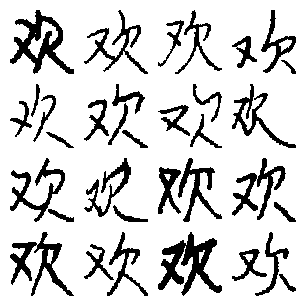 欢欢欢欢
欢欢欢欢
欢欢欢欢
欢欢欢欢